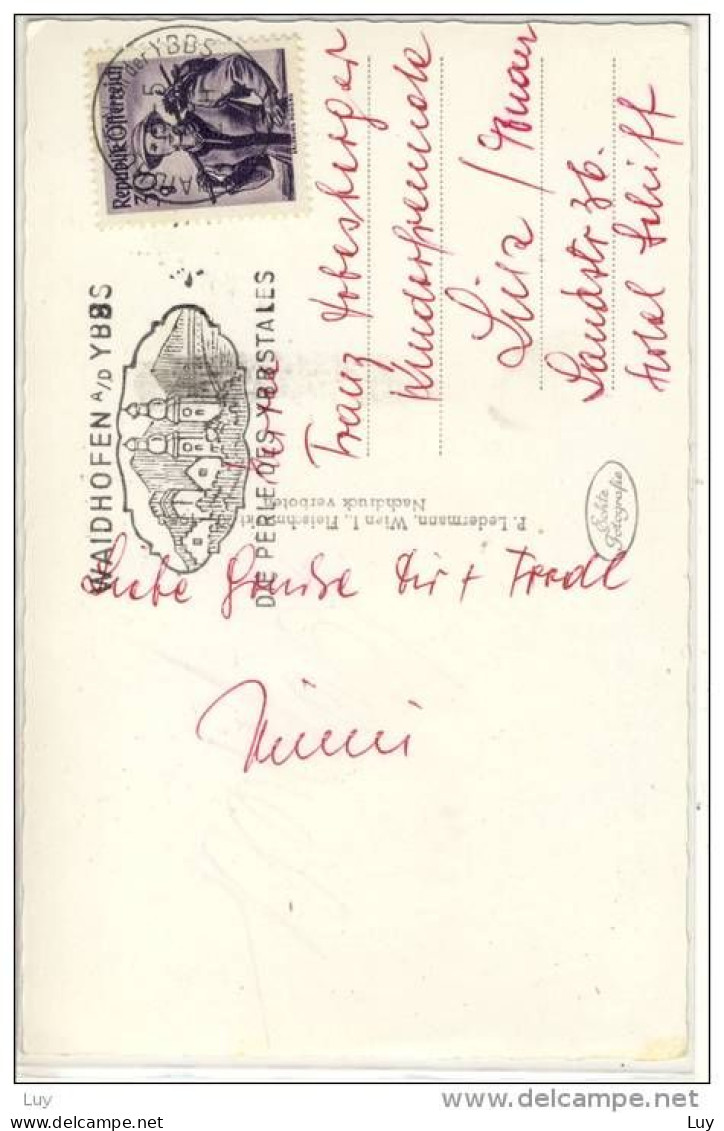 WAIDHOFEN A/D YBBS
DIE PERLE DES YBBSTALES
der YBBS
Republik Österreich
30 g
Herrn
Franz
Linz / Donau
Landstr 36.
Hotel Schiff
P. Ledermann, Wien I., Fleischm
Nachdruck verboten
Echte
Fotografie
Liebe Grüsse Dir + Fredl
Mimi
Luy
delcampe.net
Luy